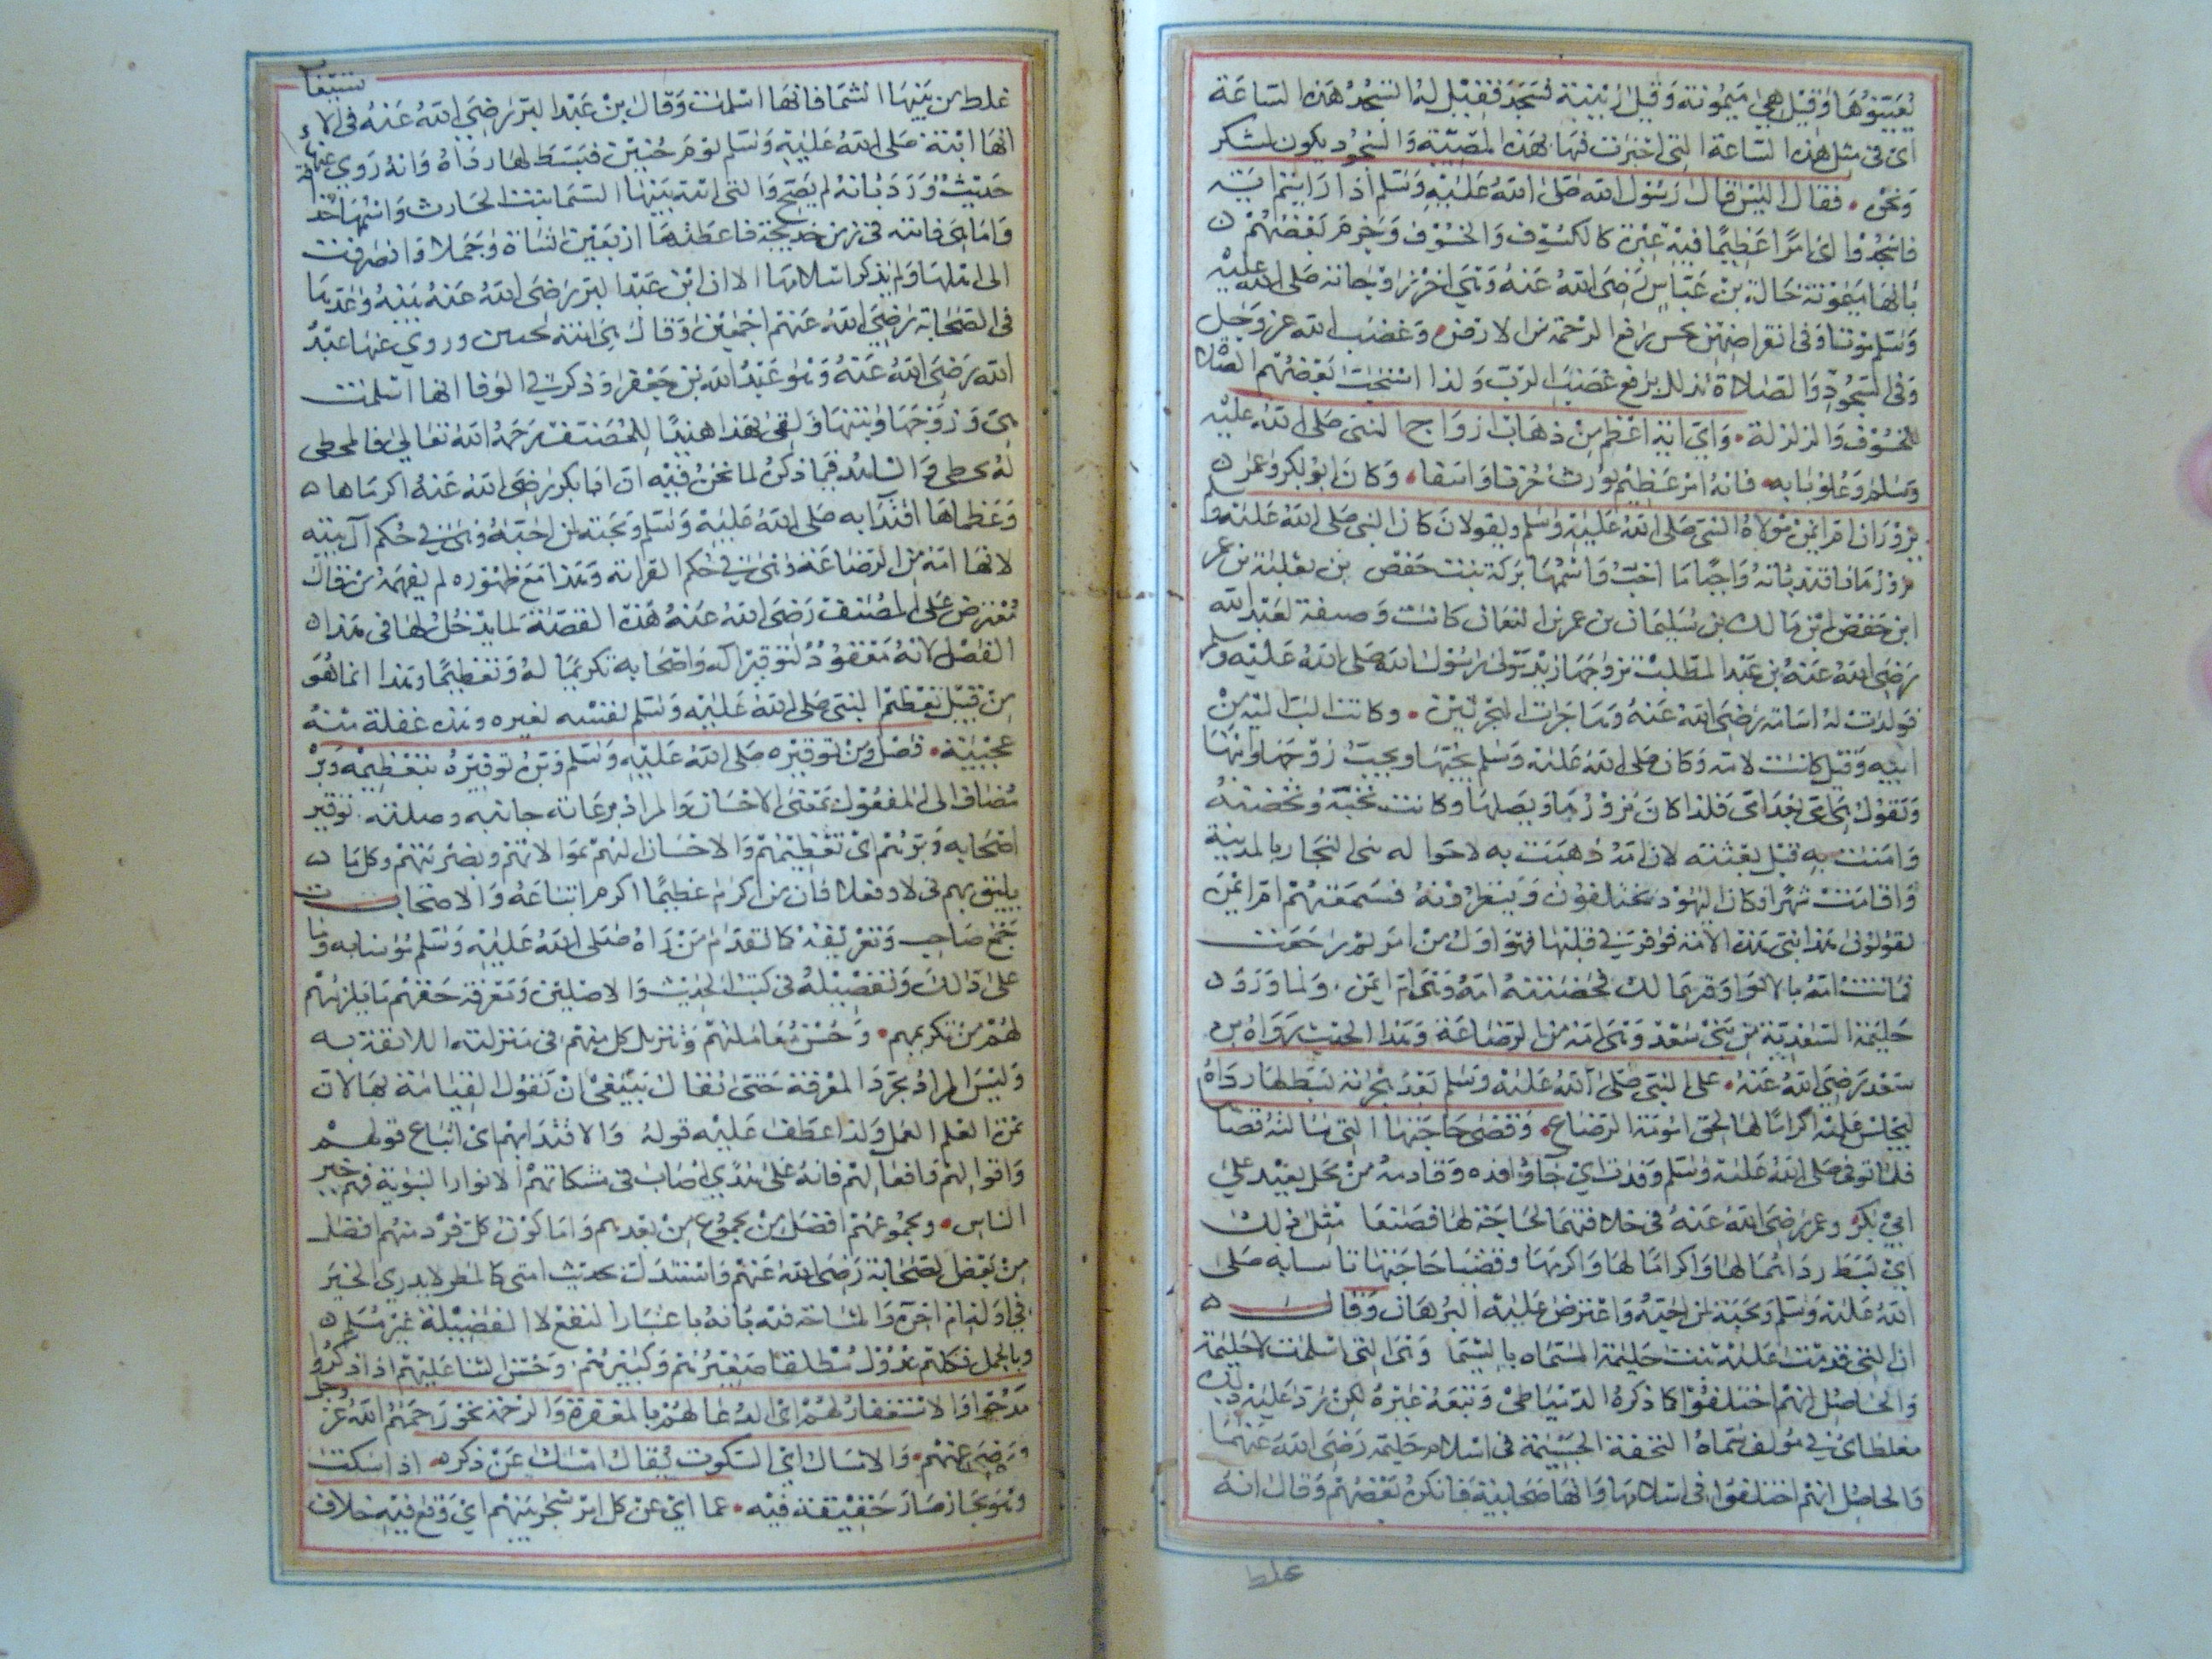 وقيل هي ميمونة وقيل زينب فسجد فقيل له اتسجد هذه الساعة
اي في مثل هذه الساعة التي اخبرت فيها بهذه المصيبة والسجود يكون لشكر
ونحوه فقال اليس قال رسول الله صلى الله عليه وسلم اذا رايتم اية
فاسجدوا اي امرا عظيما فيه عبرة كالكسوف والخسوف وجزم بعضهم
بانها ميمونة خالة بن عباس رضي الله عنه وهي اخر زوجاته صلى الله عليه
وسلم موتا وفي انقراضهن رفع الرحمة من الارض وغضب الله عز وجل
وفي السجود والصلاة تذلل يرفع غضب الرب ولذا استحب بعضهم الصلاة
للخسوف والزلزلة واي اية اعظم من ذهاب ازواج النبي صلى الله عليه
وسلم فانه امر عظيم يورث حزنا واسفا وكان ابو بكر وعمر
يزوران ام ايمن مولاة النبي صلى الله عليه وسلم ويقولان كان النبي صلى الله عليه وسلم
يزورها واسمها بركة بنت حفص بن ثعلبة بن عمر
ابن حفص ابن مالك بن سليمان بن عمر بن النعمان كانت وصيفة لعبد الله
رضي الله عنه بن عبد المطلب تزوجها زيد مولى رسول الله صلى الله عليه وسلم
فولدت له اسامة رضي الله عنه وهاجرت الهجرتين وكانت اليه من
ابيه وقيل كانت لامه وكان صلى الله عليه وسلم يحبها ويحب زوجها وابنها
ويقول هي امي بعد امي فلذا كان يزورها ويصلها وكانت تحبه وتحضنه
وامنت به قبل بعثته لان امه ذهبت به لاخواله بني النجار بالمدينة
واقامت شهرا وكان اليهود يختلفون وينظرونه فسمعتهم ام ايمن
يقولون هذا نبي هذه الامة فوقر في قلبها فهو اول من امن ثم رجعت
فماتت امه بالابواء وقبرها هنالك فحضنته امه وهي ام ايمن ولما ورد
حليمة السعدية من بني سعد وهي امه من الرضاعة وهذا الحديث رواه بن
سعد رضي الله عنه على النبي صلى الله عليه وسلم بسط لها رداه
ليجلس عليه اكراما لها لحق امومة الرضاع وقضى حاجتها التي
فلما توفي صلى الله عليه وسلم وفدت اي جاءت وافدة وقادمة من محل بعيد على
ابي بكر وعمر رضي الله عنه في خلافتهما لحاجة لها فصنعا مثل ذلك
اي بسط ردائهما لها واكراما لها واكرمها وقضيا حاجتها تاسيا به صلى
الله عليه وسلم ومحبة لمن احبه واعترض عليه البرهان وقال
ان التي قدمت عليه بنت حليمة المسماه بالشيما وهي التي اسلمت لا حليمة
والحاصل انهم اختلفوا كما ذكره الدمياطي وتبعه غيره لكن رد عليه ذلك
مغلطاي في مؤلف سماه التحفة الجسيمة في اسلام حليمة رضي الله عنهما
والحاصل انهم اختلفوا في اسلامها وانها صحابية فانكره بعضهم وقال انه
غلط
غلط من بينها الشما فانها اسلمت وقال بن عبد البر رضي الله عنه في الاستيعاب
انها اتته صلى الله عليه وسلم يوم حنين فبسط لها رداه وانه روي عنها
حديث ورد بانه لم يصح والتي اتته بنتها الشما بنت الحارث واسمها
واما هي فاتته في زمن خديجة فاعطتها اربعين شاة وجملا وانصرفت
الى اهلها ولم يذكر اسلامها الا ان ابن عبد البر رضي الله عنه
في الصحابة رضي الله عنهم اجمعين وقال وروي عنها عبد
الله رضي الله عنه وهو عبد الله بن جعفر وذكر في الوفا انها اسلمت
هي وزوجها وبنتها وكفى بهذا للمصنف رحمه الله تعالى
فيما ذكر لما نحن فيه ان ابا بكر رضي الله عنه اكرمها
وعظمها اقتدا به صلى الله عليه وسلم ومحبة لمن احبه وهي في حكم ال بيته
لانها امه من الرضاعة وهي في حكم القرابة وهذا مع ظهوره لم يفهمه من قال
معترض على المصنف رضي الله عنه هذه القصة لا يدخل لها في هذا
الفصل لانه معقود لتوقير اله واصحابه تكريما له وتعظيما وهذا انما هو
من قبيل تعظيم النبي صلى الله عليه وسلم لنفسه لغيره وهذه غفلة منه
عجيبة فصل ومن توقيره صلى الله عليه وسلم وبره توقيره بتعظيمه وبر
مضاف الى المفعول بمعنى الاحسان والمراد رعاية جانبه وصلته توقير
اصحابه وبرهم اي تعظيمهم والاحسان اليهم بموالاتهم ونصرتهم وكل ما
يليق بهم قولا وفعلا فان من اكرام عظيما اكرم اتباعه والاصحاب
جمع صاحب وتعريفه كما تقدم من راه صلى الله عليه وسلم مؤمنا به ومات
على ذلك وتفصيله في كتب الحديث والاصلين ومعرفة حقهم ما يلزمهم
لهم من تكريمهم وحسن معاملتهم وتنزيل كل منهم في منزلته اللائقة به
وليس المراد مجرد المعرفة حتى يقال ينبغي ان نقول القيامة بها لان
ثمرة العلم العمل ولذا عطف عليه قوله والاقتدا بهم اي اتباع قولهم
واقوالهم وافعالهم فانه على هدي اصاب في مشكاتهم الانوار النبوية فهم خير
الناس ومجموعهم افضل من مجموع من بعدهم واما كون كل فرد منهم افضل
من بعض الصحابة رضي الله عنهم واستدل بحديث امتي كالمطر لا يدري الخير
في اوله ام اخره والمشاحة فيه بانه باعتبار النفع لا الفضيلة غير مسلم
وبالجمل فكلهم عدول مطلقا صغيرهم وكبيرهم وحسن الثنا عليهم اذا ذكروا
مدحوا والاستغفار لهم اي الدعا لهم بالمغفرة والرحمة نحو رحمهم الله عز وجل
ورضي عنهم والامساك اي السكوت يقال امسك عن ذكره اذا سكت
وهو مجاز صار حقيقة فيه عما اي عن كل امر شجر بينهم اي وقع فيه خلاف